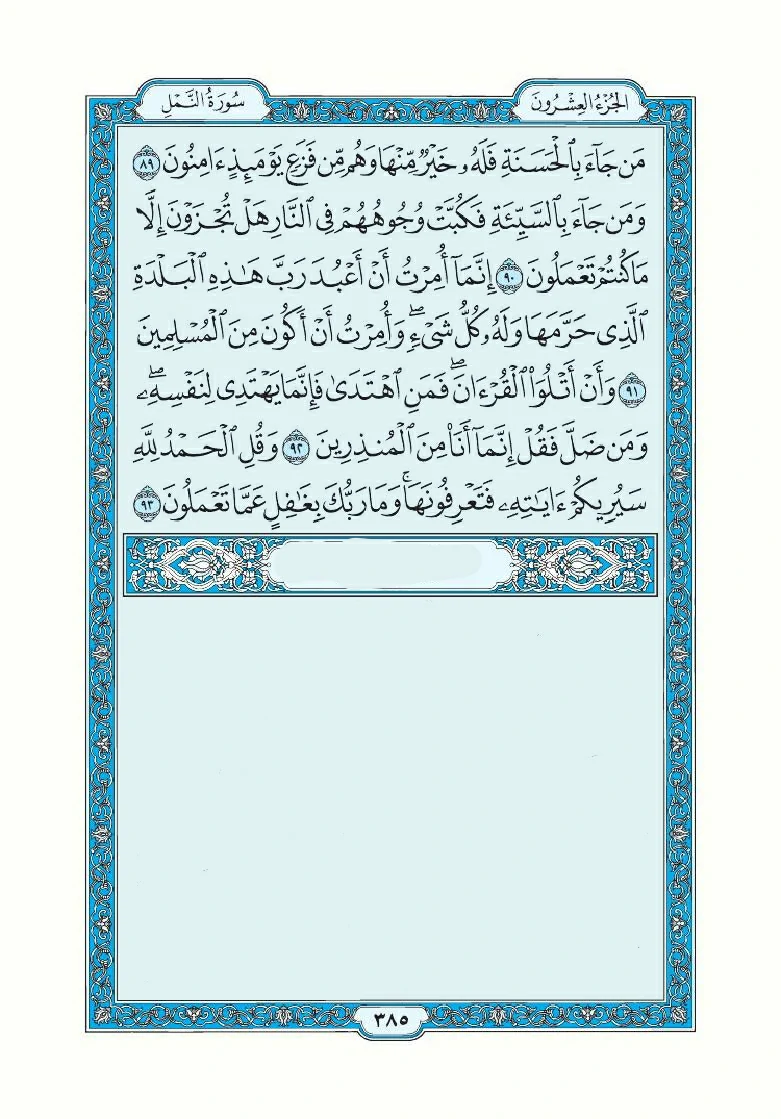 الجُزْءُ العِشْرُونَ
سُورَةُ النَّمْلِ
مَن جَآءَ بِٱلْحَسَنَةِ فَلَهُۥ خَيْرٌ مِّنْهَا وَهُم مِّن فَزَعٍ يَوْمَئِذٍ ءَامِنُونَ ٨٩
وَمَن جَآءَ بِٱلسَّيِّئَةِ فَكُبَّتْ وُجُوهُهُمْ فِى ٱلنَّارِ هَلْ تُجْزَوْنَ إِلَّا
مَا كُنتُمْ تَعْمَلُونَ ٩٠ إِنَّمَآ أُمِرْتُ أَنْ أَعْبُدَ رَبَّ هَـٰذِهِ ٱلْبَلْدَةِ
ٱلَّذِى حَرَّمَهَا وَلَهُۥ كُلُّ شَىْءٍ ۖ وَأُمِرْتُ أَنْ أَكُونَ مِنَ ٱلْمُسْلِمِينَ
٩١ وَأَنْ أَتْلُوَا۟ ٱلْقُرْءَانَ ۖ فَمَنِ ٱهْتَدَىٰ فَإِنَّمَا يَهْتَدِى لِنَفْسِهِۦ ۖ
وَمَن ضَلَّ فَقُلْ إِنَّمَآ أَنَا۠ مِنَ ٱلْمُنذِرِينَ ٩٢ وَقُلِ ٱلْحَمْدُ لِلَّهِ
سَيُرِيكُمْ ءَايَـٰتِهِۦ فَتَعْرِفُونَهَا ۚ وَمَا رَبُّكَ بِغَـٰفِلٍ عَمَّا تَعْمَلُونَ ٩٣
٣٨٥